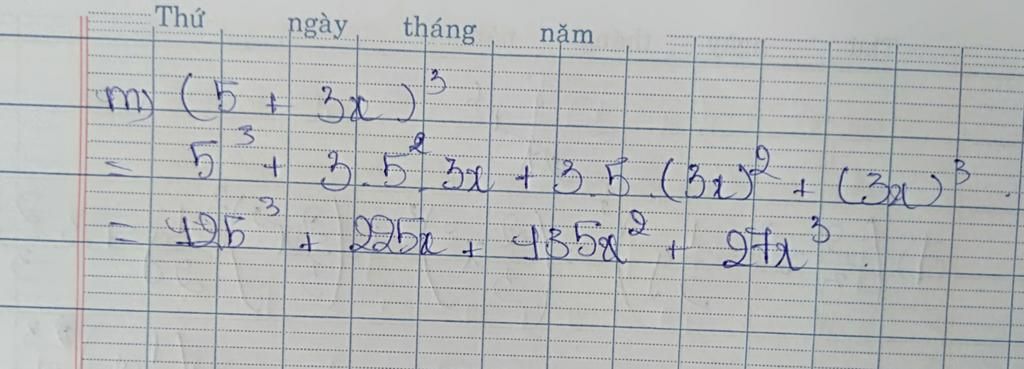 Thứ ngày tháng năm
m) (5 + 3x)³
= 5³ + 3.5².3x + 3.5.(3x)² + (3x)³.
= 125³ + 225x + 135x² + 27x³.